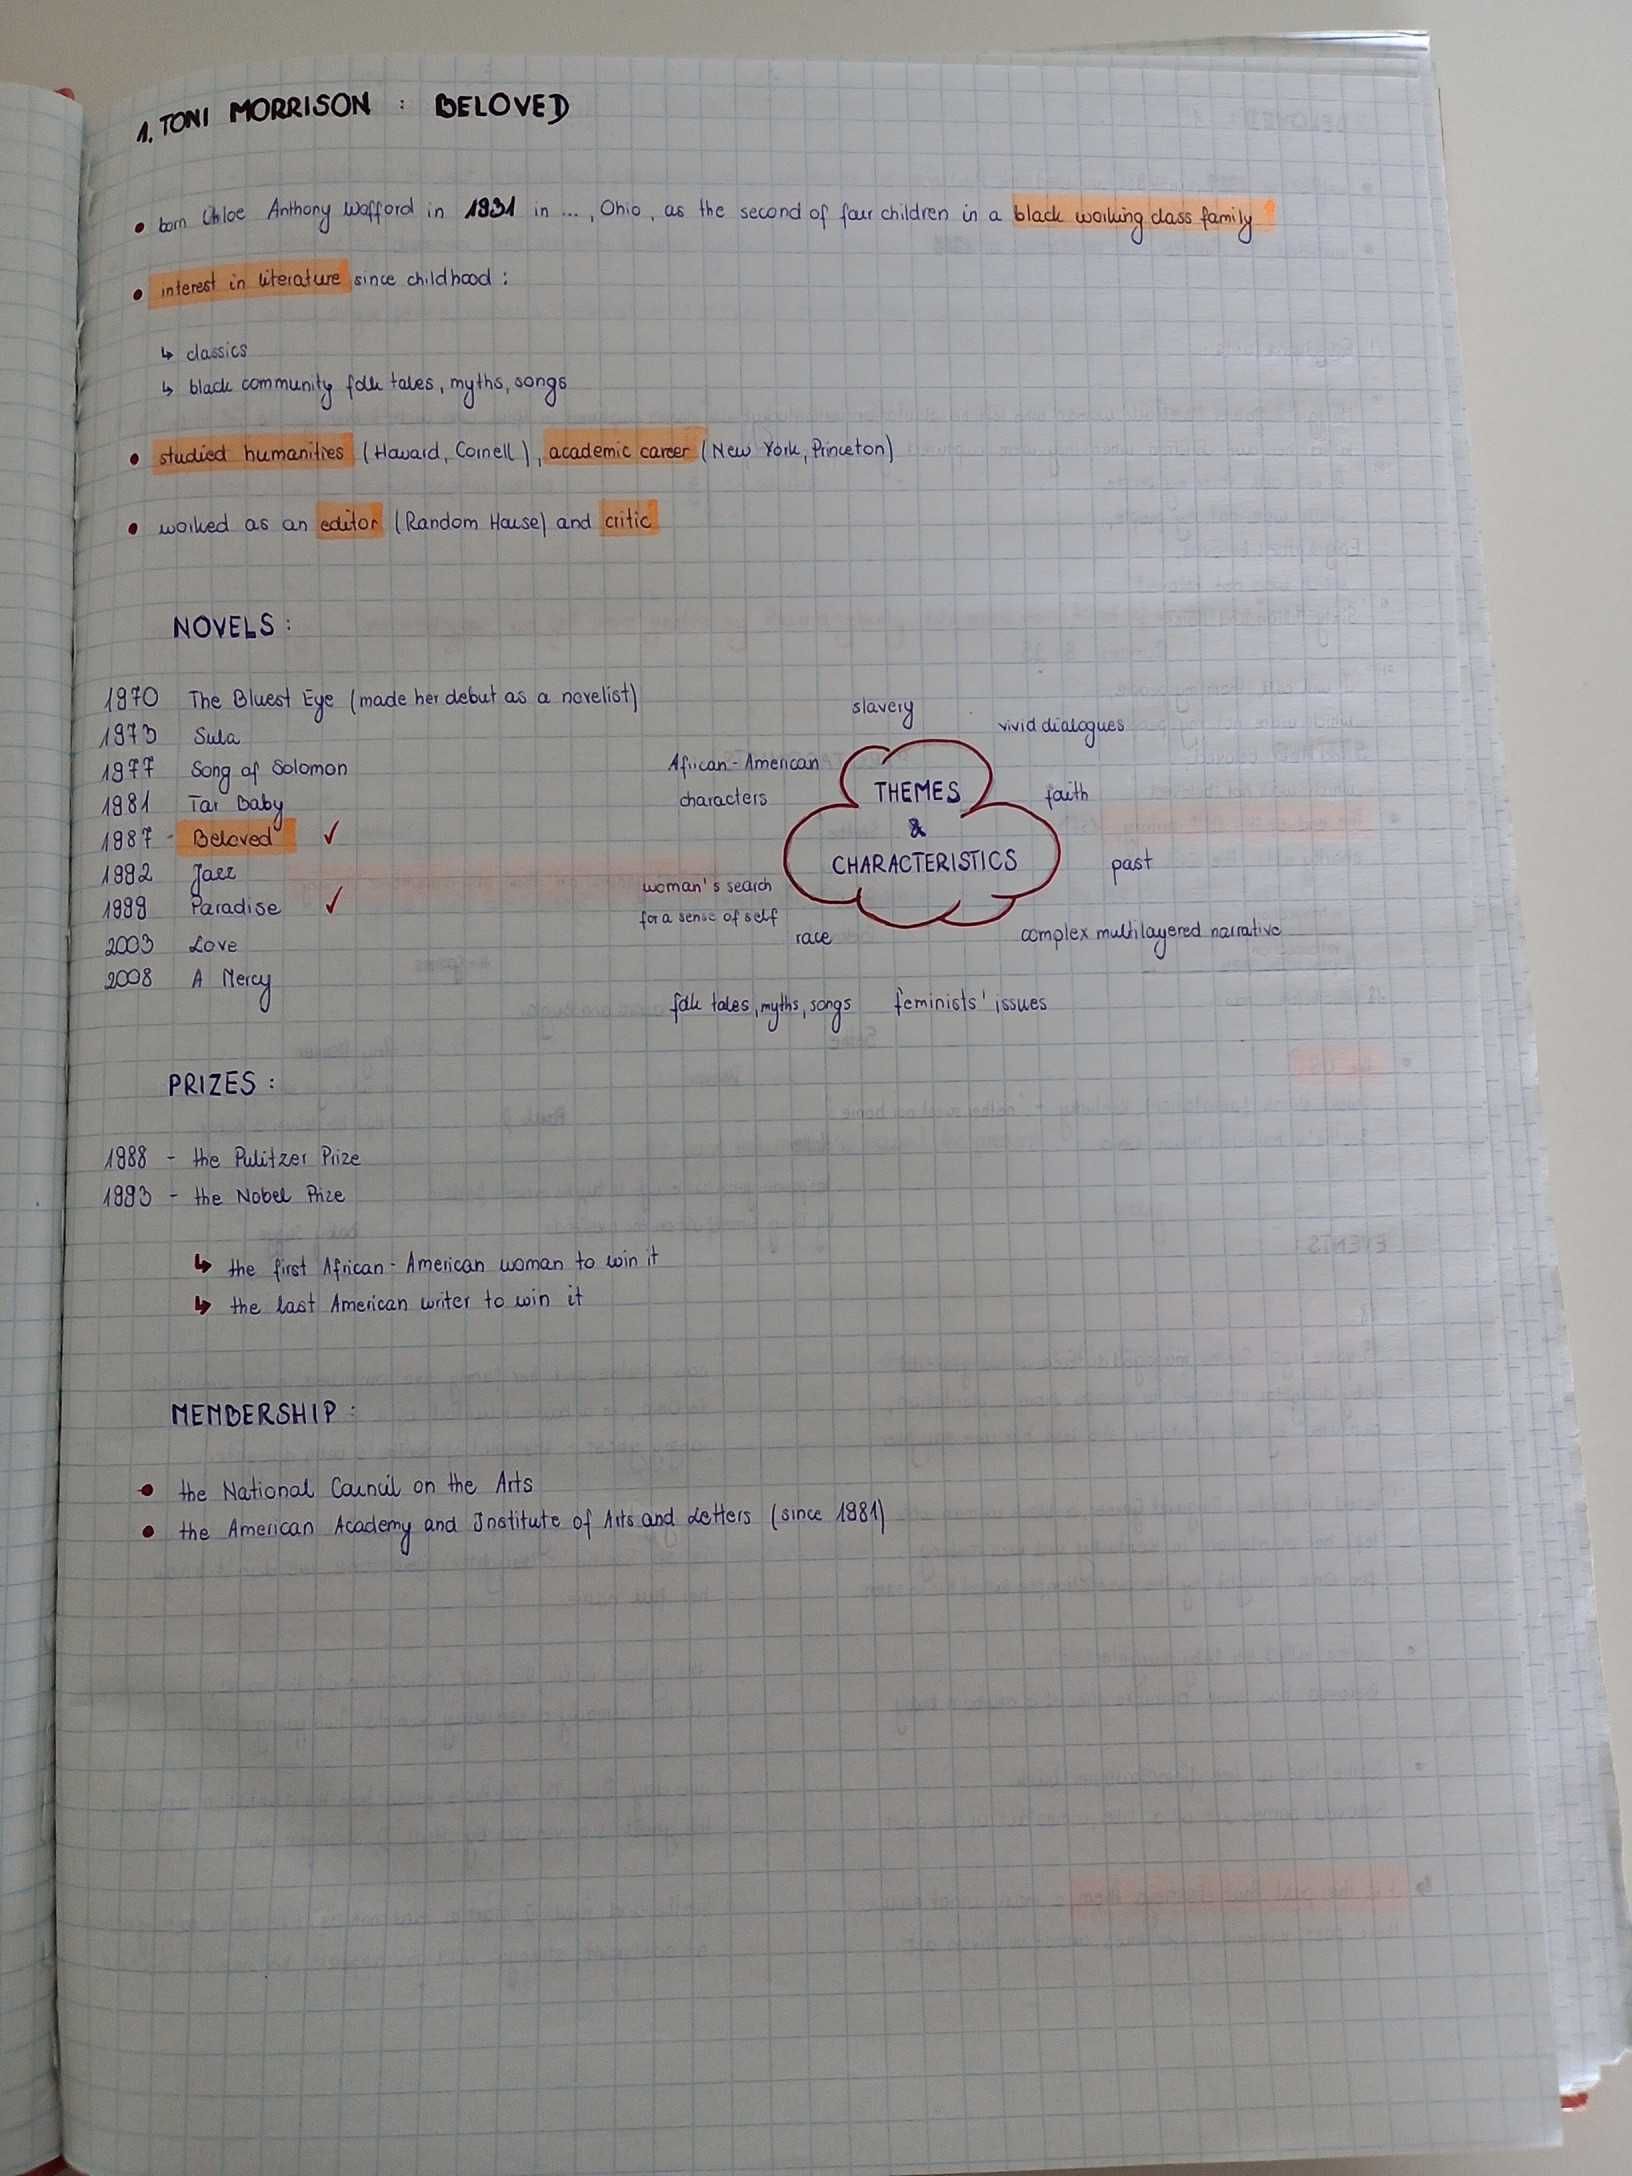 1. TONI MORRISON : BELOVED
• born Chloe Anthony Wofford in 1931 in ..., Ohio, as the second of four children in a black working class family
• interest in literature since childhood :
↳ classics
↳ black community folk tales, myths, songs
• studied humanities (Howard, Cornell), academic career (New York, Princeton)
• worked as an editor (Random House) and critic
NOVELS :
1970 The Bluest Eye (made her debut as a novelist)
1973 Sula
1977 Song of Solomon
1981 Tar Baby
1987 - Beloved ✓
1992 Jazz
1999 Paradise ✓
2003 Love
2008 A Mercy
slavery
vivid dialogues
African-American
characters
THEMES
&
CHARACTERISTICS
faith
past
woman's search
for a sense of self
race
complex multilayered narrative
folk tales, myths, songs
feminists' issues
PRIZES :
1988 - the Pulitzer Prize
1993 - the Nobel Prize
↳ the first African-American woman to win it
↳ the last American writer to win it
MEMBERSHIP :
• the National Council on the Arts
• the American Academy and Institute of Arts and Letters (since 1981)